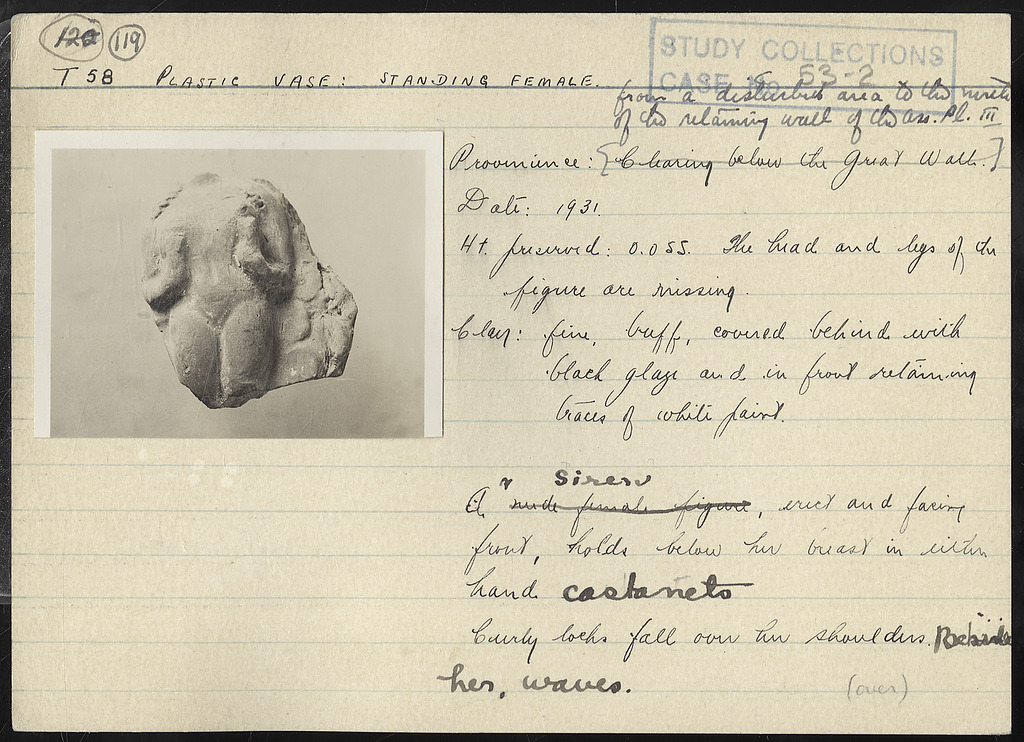 120 119
STUDY COLLECTIONS
CASE No. 53-2
T 58 PLASTIC VASE: STANDING FEMALE.
from a disturbed area to the north
of the retaining wall of the Ass. Pl. III
Provenience: [Clearing below the Great Wall.]
Date: 1931.
Ht. preserved: 0.055. The head and legs of the
figure are missing.
Clay: fine, buff, covered behind with
black glaze and in front retaining
traces of white paint.
Siren
A nude female figure, erect and facing
front, holds below her breast in either
hand castanets
Curly locks fall over her shoulders. Beside
her, waves.
(over)